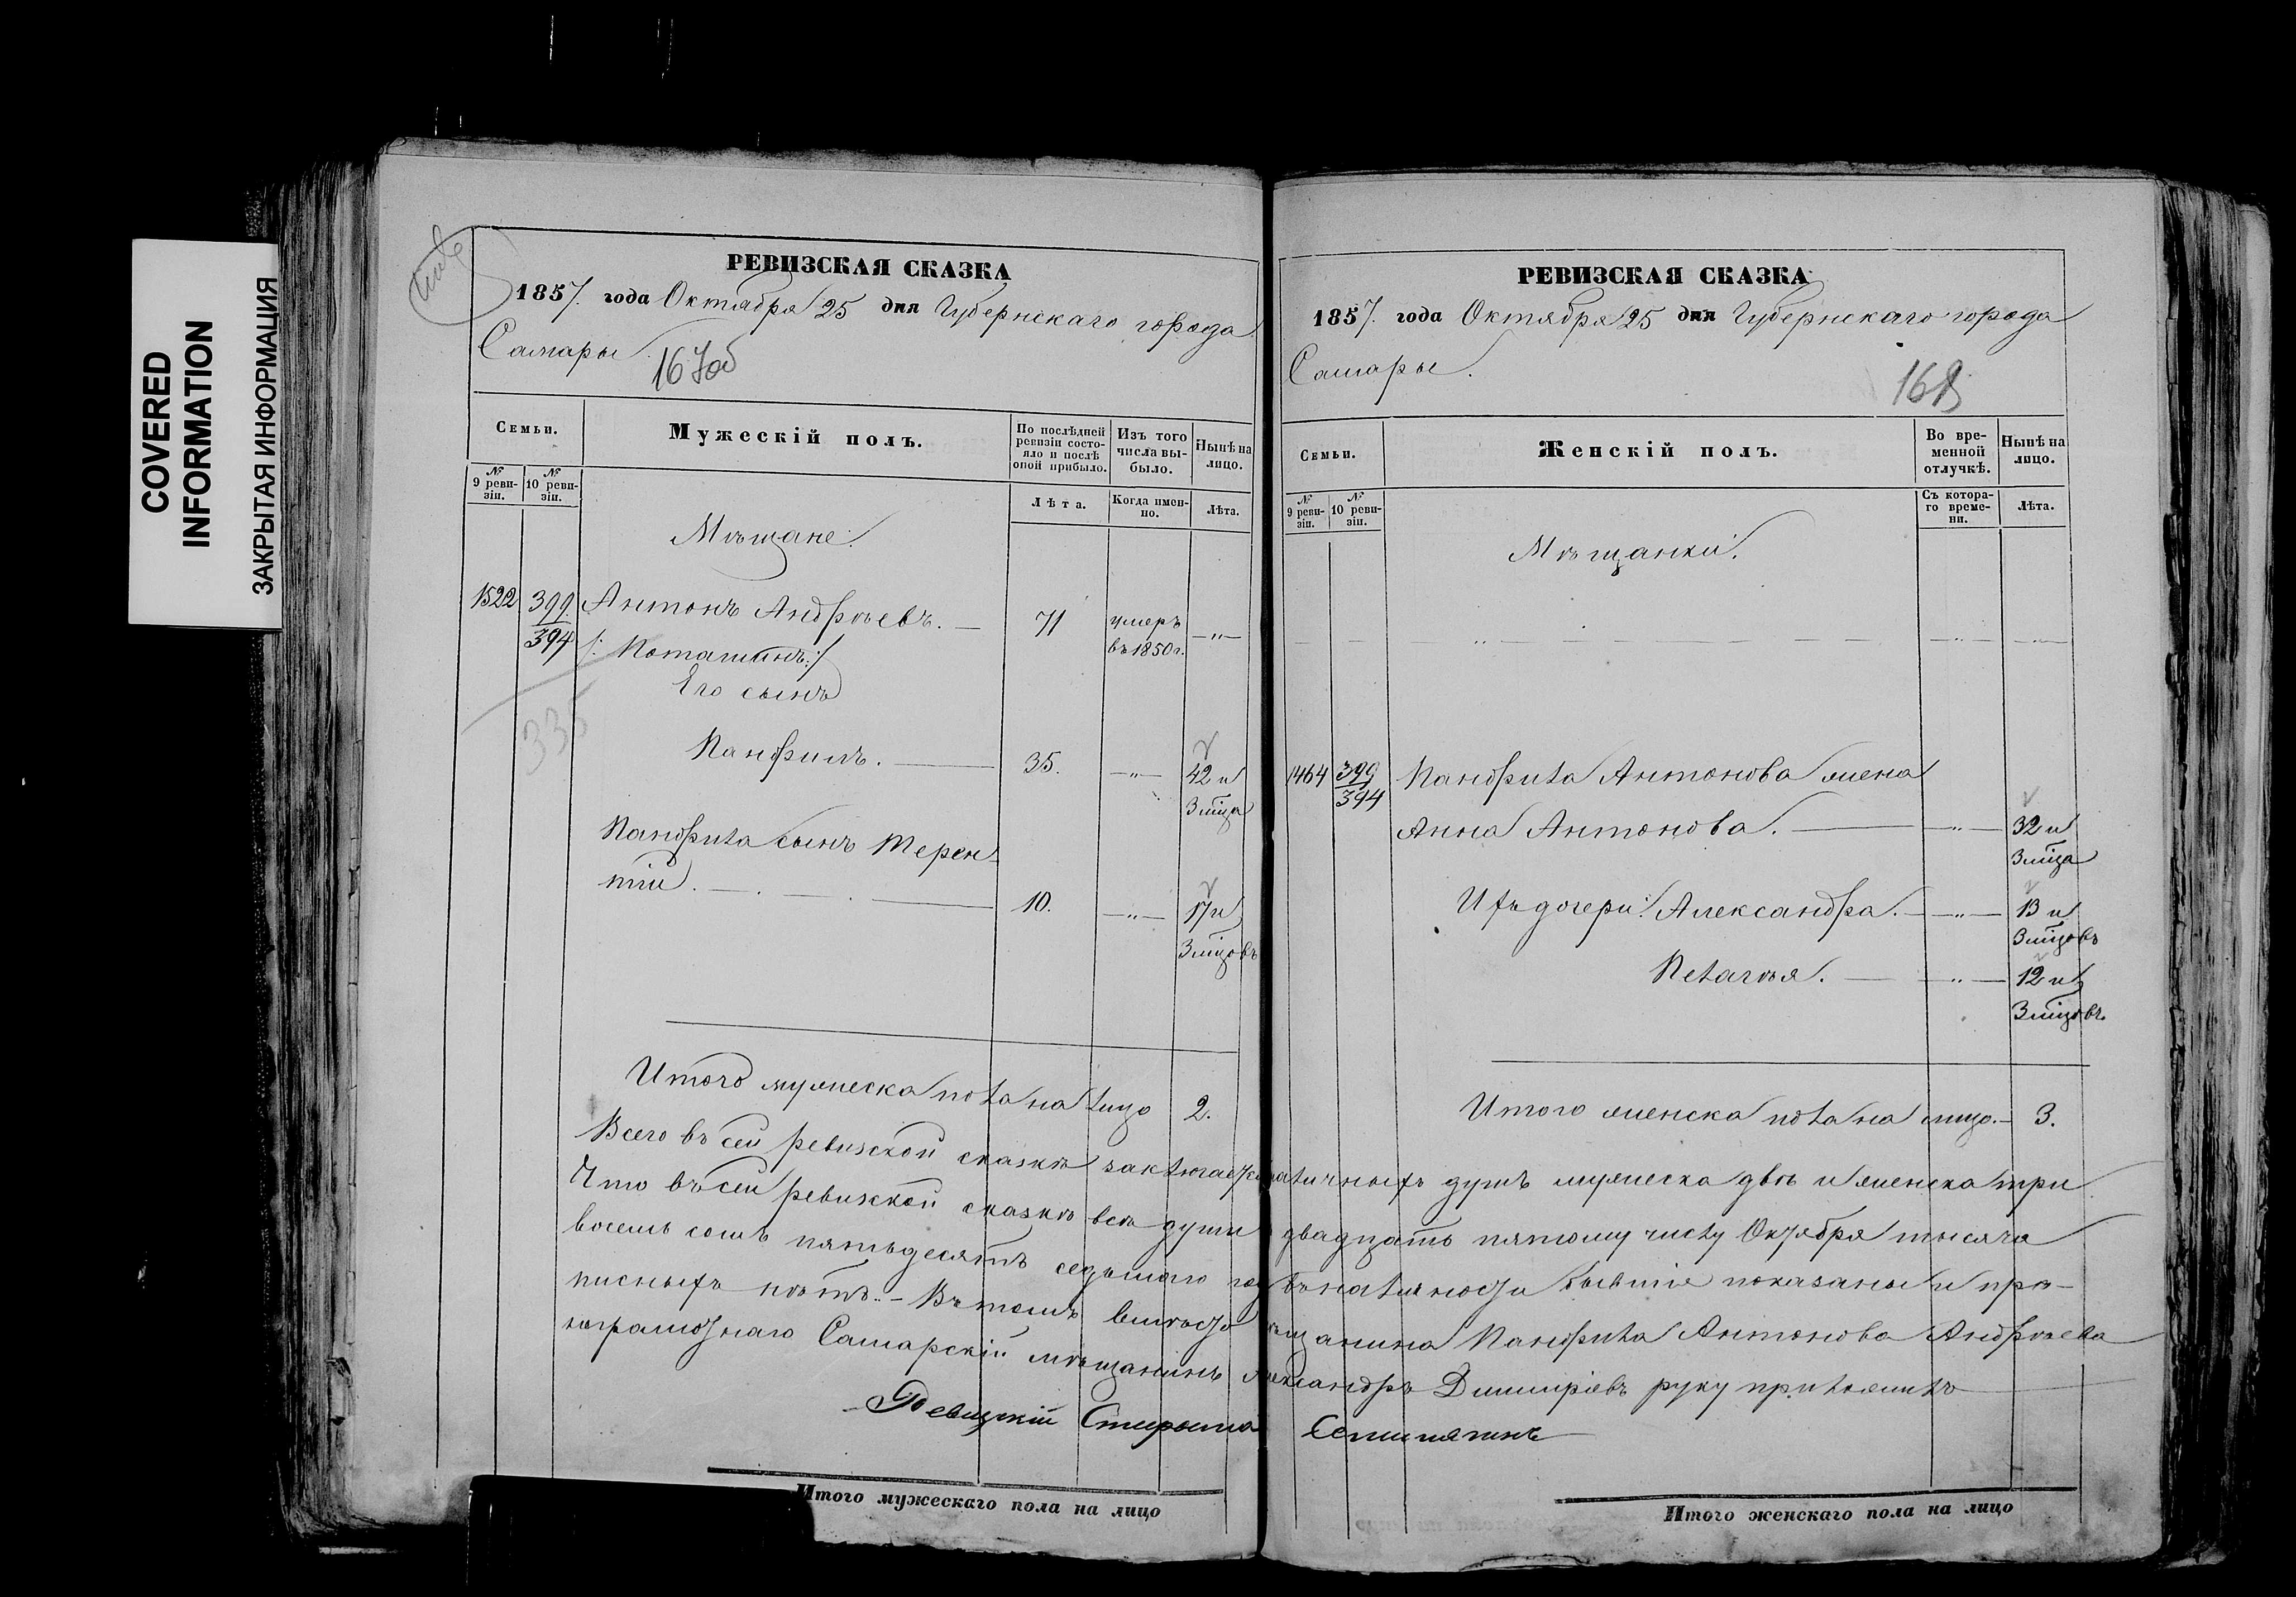 COVERED
INFORMATION
ЗАКРЫТАЯ ИНФОРМАЦИЯ
РЕВИЗСКАЯ СКАЗКА
1857. года Октября 25 дня Губернскаго города
Самары.
167об
Семьи.
Мужескій полъ.
По послѣдней ревизіи состояло и послѣ оной прибыло.
Изъ того числа выбыло.
Нынѣ на лицо.
№ 9 ревизіи.
№ 10 ревизіи.
Лѣта.
Когда именно.
Лѣта.
Мѣщане.
1522 399 Антонъ Андрѣевъ. — 71 умеръ —"—
394 /: Поташинъ :/ въ 1850 г.
Его сынъ
335
Панфилъ. — 35. —"— 42 и
3 мѣца
Панфила сынъ Терен-
тій. — 10. —"— 17 и
3 мѣцовъ
Итого мужеска пола на лицо 2.
РЕВИЗСКАЯ СКАЗКА
1857. года Октября 25 дня Губернскаго города
Самары.
168
Семьи.
Женскій полъ.
Во временной отлучкѣ.
Нынѣ на лицо.
№ 9 ревизіи.
№ 10 ревизіи.
Съ котораго времени.
Лѣта.
Мѣщанки.
1464 399 Панфила Антонова жена
394 Анна Антонова. — —"— 32 и
3 мѣца
Ихъ дочери: Александра. — —"— 13 и
3 мѣцовъ
Пелагѣя. — —"— 12 и
3 мѣцовъ
Итого женска пола на лицо. — 3.
Всего въ сей ревизской сказкѣ заключается наличныхъ душъ мужеска двѣ и женска три
Что въ сей ревизской сказкѣ всѣ души двадцать пятому числу Октября тысяча
восемь сотъ пятьдесятъ седьмаго въ наличности бывшіе показаны и про-
писныхъ нѣтъ. — Въ томъ вмѣсто мѣщанина Панфила Антонова Андрѣева
неграмотнаго Самарскій мѣщанинъ Александръ Димитріевъ руку приложилъ
Ревизскій Староста
Итого мужескаго пола на лицо
Итого женскаго пола на лицо